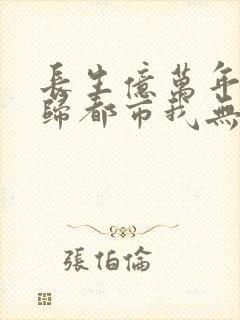 長生億萬年
歸都市我無
張伯倫